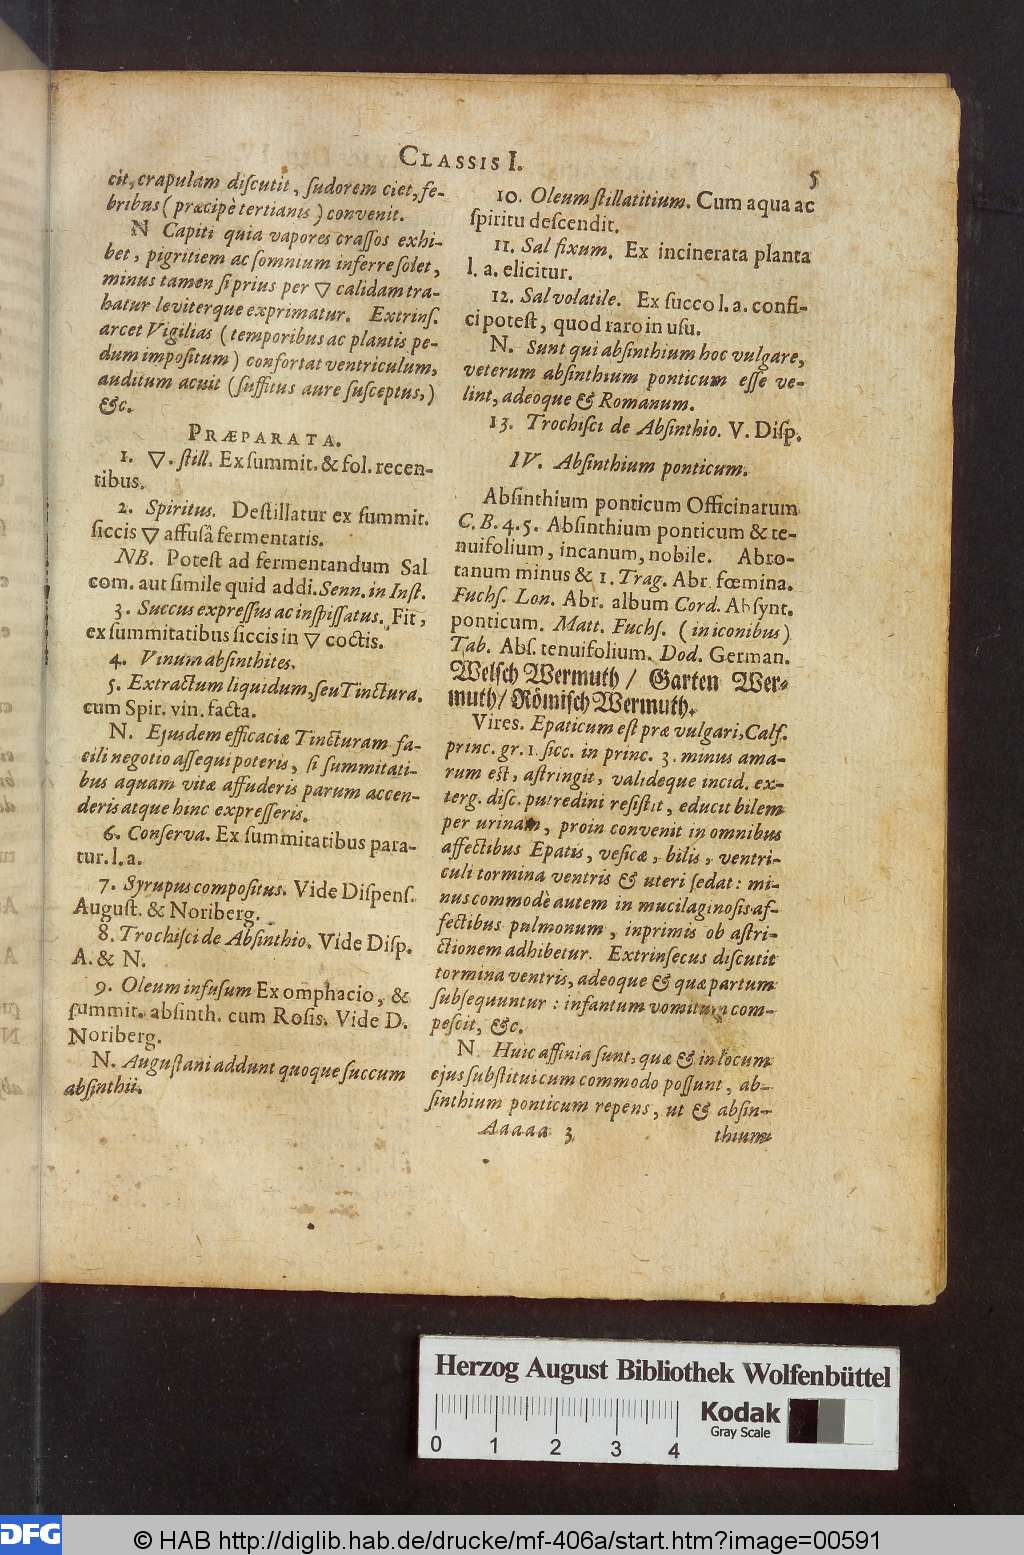 CLASSIS I.
5
cit, crapulam diſcutit, ſudorem ciet, fe-
bribus (præcipè tertianis) convenit.
N Capiti quia vapores craſſos exhi-
bet, pigritiem ac ſomnium inferre ſolet,
minus tamen ſi prius per ▽ calidam tra-
hatur leviterque exprimatur. Extrinſ.
arcet Vigilias (temporibus ac plantis pe-
dum impoſitum) confortat ventriculum,
auditum acuit (ſuffitus aure ſuſceptus,)
&c.
PRÆPARATA.
1. ▽. ſtill. Ex ſummit. & fol. recen-
tibus.
2. Spiritus. Deſtillatur ex ſummit.
ſiccis ▽ affuſâ fermentatis.
NB. Poteſt ad fermentandum Sal
com. aut ſimile quid addi. Senn. in Inſt.
3. Succus expreſſus ac inſpiſſatus. Fit,
ex ſummitatibus ſiccis in ▽ coctis.
4. Vinum abſinthites.
5. Extractum liquidum, ſeu Tinctura.
cum Spir. vin. facta.
N. Ejusdem efficaciæ Tincturam fa-
cili negotio aſſequi poteris, ſi ſummitati-
bus aquam vitæ affuderis parum accen-
deris atque hinc expreſſeris.
6. Conſerva. Ex ſummitatibus para-
tur. l. a.
7. Syrupus compoſitus. Vide Diſpenſ.
Auguſt. & Noriberg.
8. Trochiſci de Abſinthio. Vide Diſp.
A. & N.
9. Oleum infuſum Ex omphacio, &
ſummit. abſinth. cum Roſis. Vide D.
Noriberg.
N. Auguſtani addunt quoque ſuccum
abſinthii.
10. Oleum ſtillatitium. Cum aqua ac
ſpiritu deſcendit.
11. Sal fixum. Ex incinerata planta
l. a. elicitur.
12. Sal volatile. Ex ſucco l. a. confi-
ci poteſt, quod raro in uſu.
N. Sunt qui abſinthium hoc vulgare,
veterum abſinthium ponticum eſſe ve-
lint, adeoque & Romanum.
13. Trochiſci de Abſinthio. V. Diſp.
IV. Abſinthium ponticum.
Abſinthium ponticum Officinarum
C. B. 4. 5. Abſinthium ponticum & te-
nuifolium, incanum, nobile. Abro-
tanum minus & 1. Trag. Abr. fœmina.
Fuchſ. Lon. Abr. album Cord. Abſynt.
ponticum. Matt. Fuchſ. (in iconibus)
Tab. Abſ. tenuifolium. Dod. German.
Welſch Wermuth / Garten Wer-
muth / Römiſch Wermuth.
Vires. Epaticum eſt præ vulgari, Calf.
princ. gr. 1 ſicc. in princ. 3. minus ama-
rum eſt, aſtringit, valideque incid. ex-
terg. diſc. putredini reſiſtit, educit bilem
per urinam, proin convenit in omnibus
affectibus Epatis, veſicæ, bilis, ventri-
culi tormina ventris & uteri ſedat: mi-
nus commodè autem in mucilaginoſis af-
fectibus pulmonum, inprimis ob aſtri-
ctionem adhibetur. Extrinſecus diſcutit
tormina ventris, adeoque & quæ partum
ſubſequuntur: infantum vomitum com-
peſcit, &c.
N. Huic affinia ſunt, quæ & in locum
ejus ſubſtitui cum commodo poſſunt, ab-
ſinthium ponticum repens, ut & abſin-
Aaaaa 3
thium
Herzog August Bibliothek Wolfenbüttel
0 1 2 3 4
Kodak
Gray Scale
DFG
© HAB http://diglib.hab.de/drucke/mf-406a/start.htm?image=00591